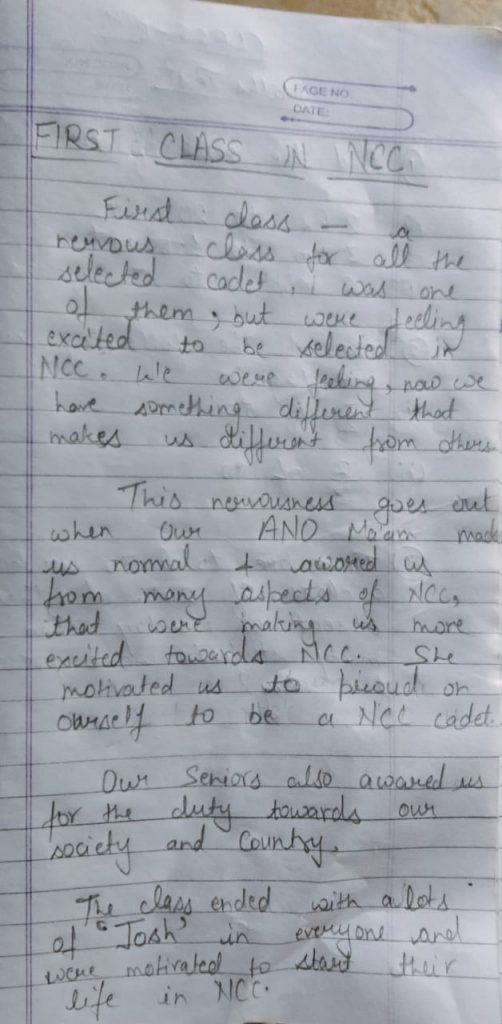 PAGE NO.
DATE:
FIRST CLASS IN NCC.
First class – a
nervous class for all the
selected cadet, i was one
of them, but were feeling
excited to be selected in
NCC. We were feeling, now we
have something different that
makes us different from others.
This nervousness goes out
when our ANO Ma'am made
us normal + awared us
from many aspects of NCC,
that were making us more
excited towards NCC. She
motivated us to proud on
ourself to be a NCC cadet.
Our Seniors also awared us
for the duty towards our
society and Country.
The class ended with a lots
of "Josh" in everyone and
were motivated to start their
life in NCC.